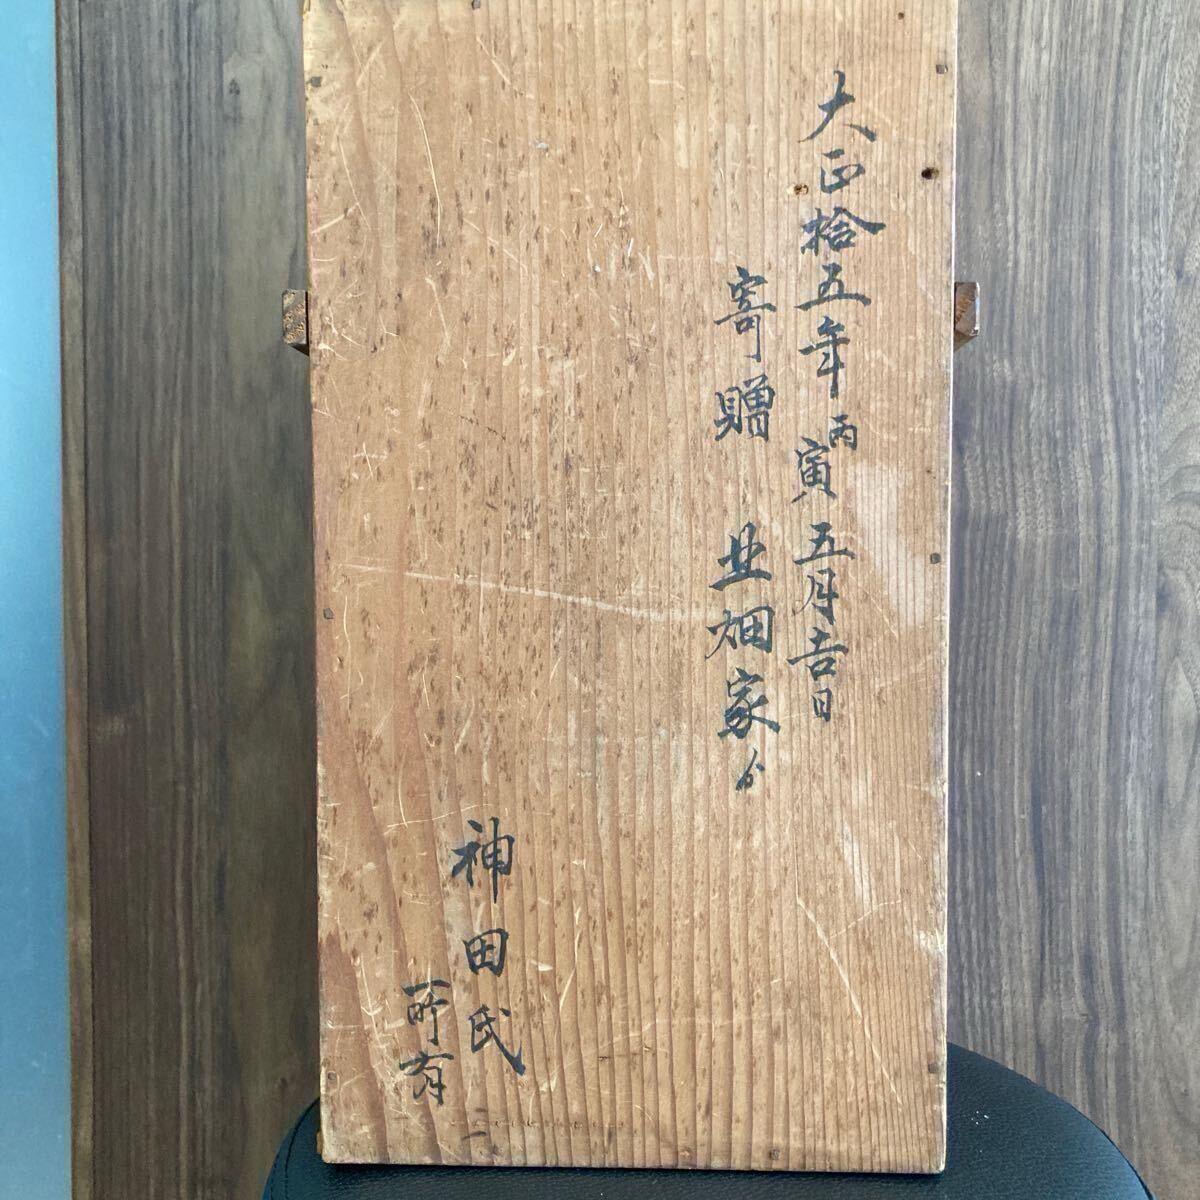 大正拾五年丙寅五月吉日
寄贈 畑家ゟ
神田氏
所有